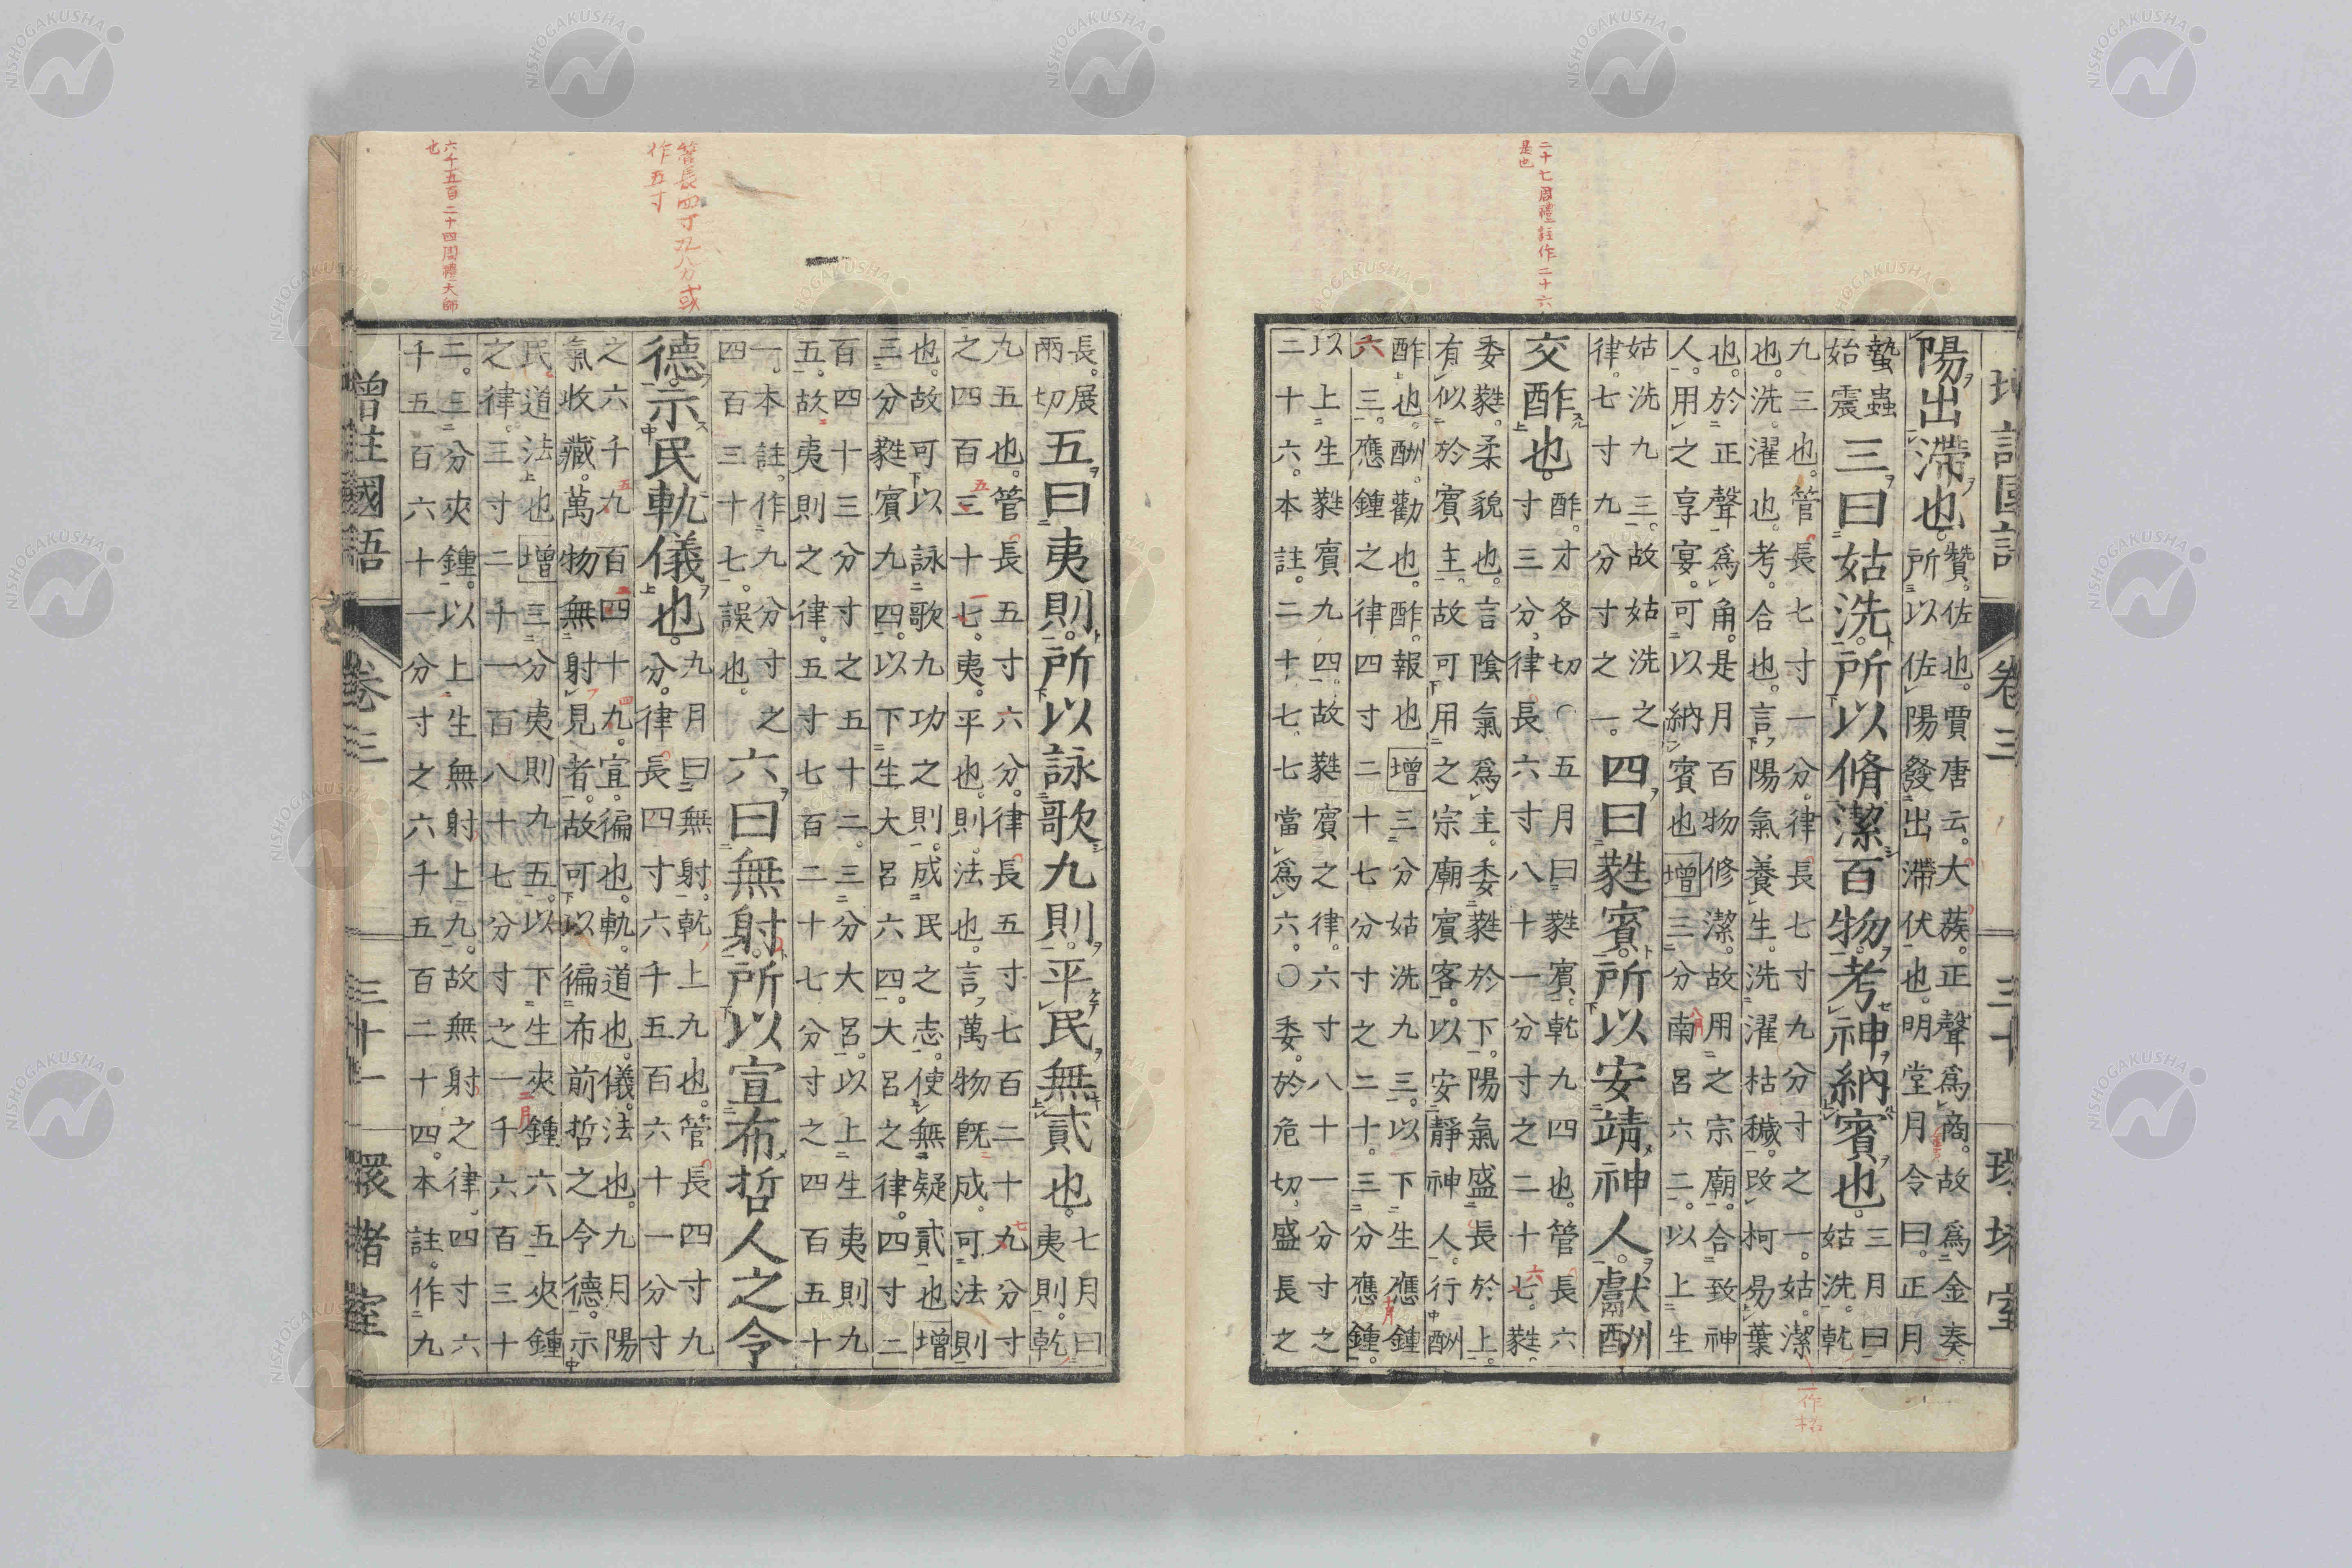 二十七周禮註作二十六
是也
陽出滯也。
贊。佐也。賈唐云。大蔟。正聲爲商。故爲金奏。
所以佐陽發出滯伏也。明堂月令曰。正月
蟄蟲
始震
三曰姑洗。所以脩潔百物。考神納賓也。
三月曰
姑洗。乾
九三也。管長七寸一分。律長七寸九分寸之一。姑潔
也。洗。濯也。考。合也。言陽氣養生。洗濯枯穢。改柯易葉
一作枯
也。於正聲爲角。是月百物修潔。故用之宗廟。合致神
人。用之享宴。可以納賓也增三分南呂六二。以上生
八月
姑洗九三。故姑洗之
律。七寸九分寸之一。
四曰蕤賓。所以安靖神人。獻酬
交酢也。
酢。才各切○五月曰蕤賓。乾九四也。管長六
寸三分。律長六寸八十一分寸之二十七。蕤
六
委蕤。柔貌也。言陰氣爲主。委蕤於下。陽氣盛長於上。
有似於賓主。故可用之宗廟賓客。以安靜神人。行酬
酢也。酬。勸也。酢。報也增三分姑洗九三。以下生應鍾
六三。應鍾之律四寸二十七分寸之二十。三分應鍾。
十月
以上生蕤賓九四。故蕤賓之律。六寸八十一分寸之
二十六。本註。二十七七當爲六。○委。於危切。盛長之
管長四寸九分或
作五寸
六千五百二十四周禮大師
也
長。展
兩切
五曰夷則。所以詠歌九則。平民無貳也。
七月曰
夷則。乾
九五也。管長五寸六分。律長五寸七百二十九分寸
之四百三十七。夷。平也。則。法也。言萬物既成。可法則
也。故可以詠歌九功之則。成民之志。使無疑貳也增
三分蕤賓九四。以下生大呂六四。大呂之律。四寸二
百四十三分寸之五十二。三分大呂。以上生夷則九
五。故夷則之律。五寸七百二十七分寸之四百五十
一。本註。作九分寸之
四百三十七。誤也。
六曰無射。所以宣布哲人之令
德。示民軌儀也。
九月曰無射。乾上九也。管長四寸九
分。律長四寸六千五百六十一分寸
之六千九百四十九。宣。徧也。軌。道也。儀。法也。九月陽
氣收藏。萬物無射見者。故可以徧布前哲之令德。示
民道法也增三分夷則九五。以下生夾鍾六五。夾鍾
之律。三寸二千一百八十七分寸之一千六百三十
二月
二。三分夾鍾。以上生無射上九。故無射之律。四寸六
千五百六十一分寸之六千五百二十四。本註。作九
增註國語 卷三 三十一 環堵室
NISHOGAKUSHA